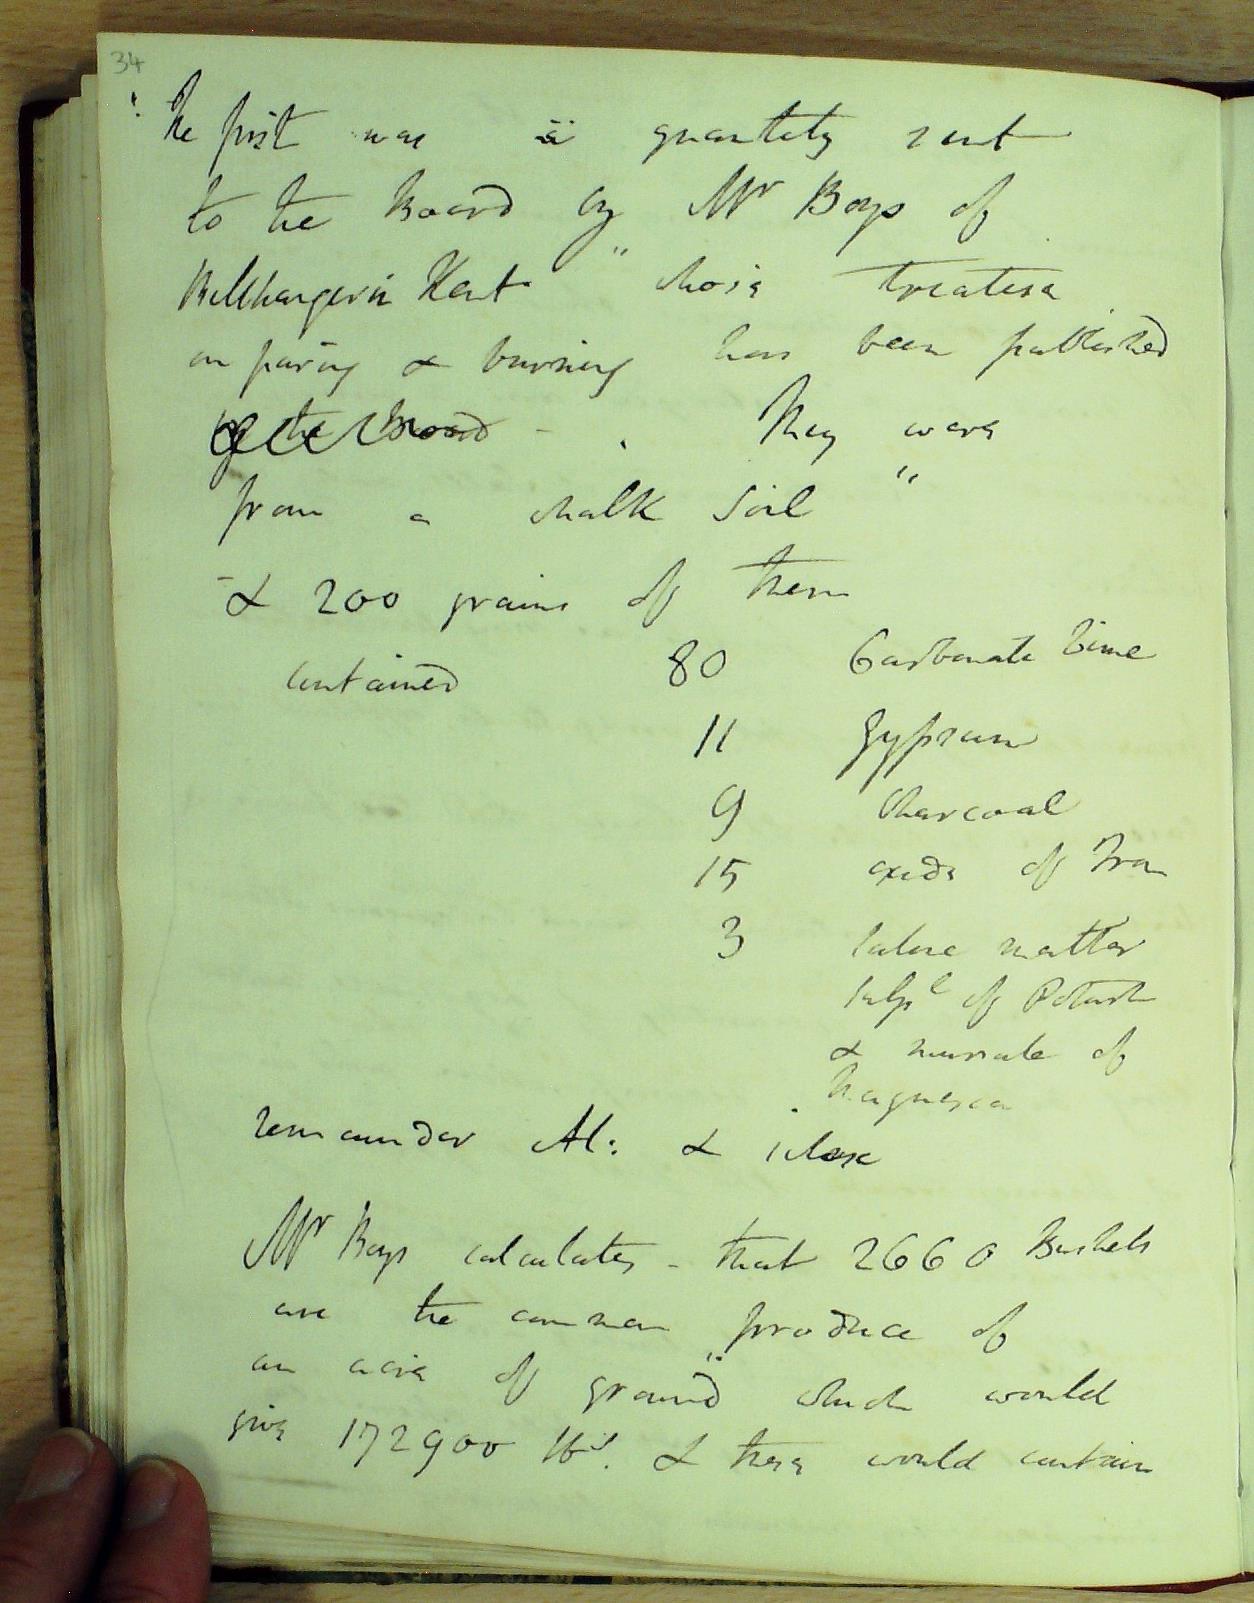 34
The first was a quantity sent
to the Board by Mr Boys of
Bellhanger in Kent whose treatise
on paring & burning has been published
by the Board - . They were
from a chalk soil
- & 200 grains of them
contained 80 Carbonate lime
11 Gypsum
9 Charcoal
15 oxide of Iron
3 saline matter
sulpe of Potash
& muriate of
Magnesia
remainder Al: & silex
Mr Boys calculates - that 2660 Bushels
are the common produce of
an acre of ground which would
give 172900 lbs. & these would contain